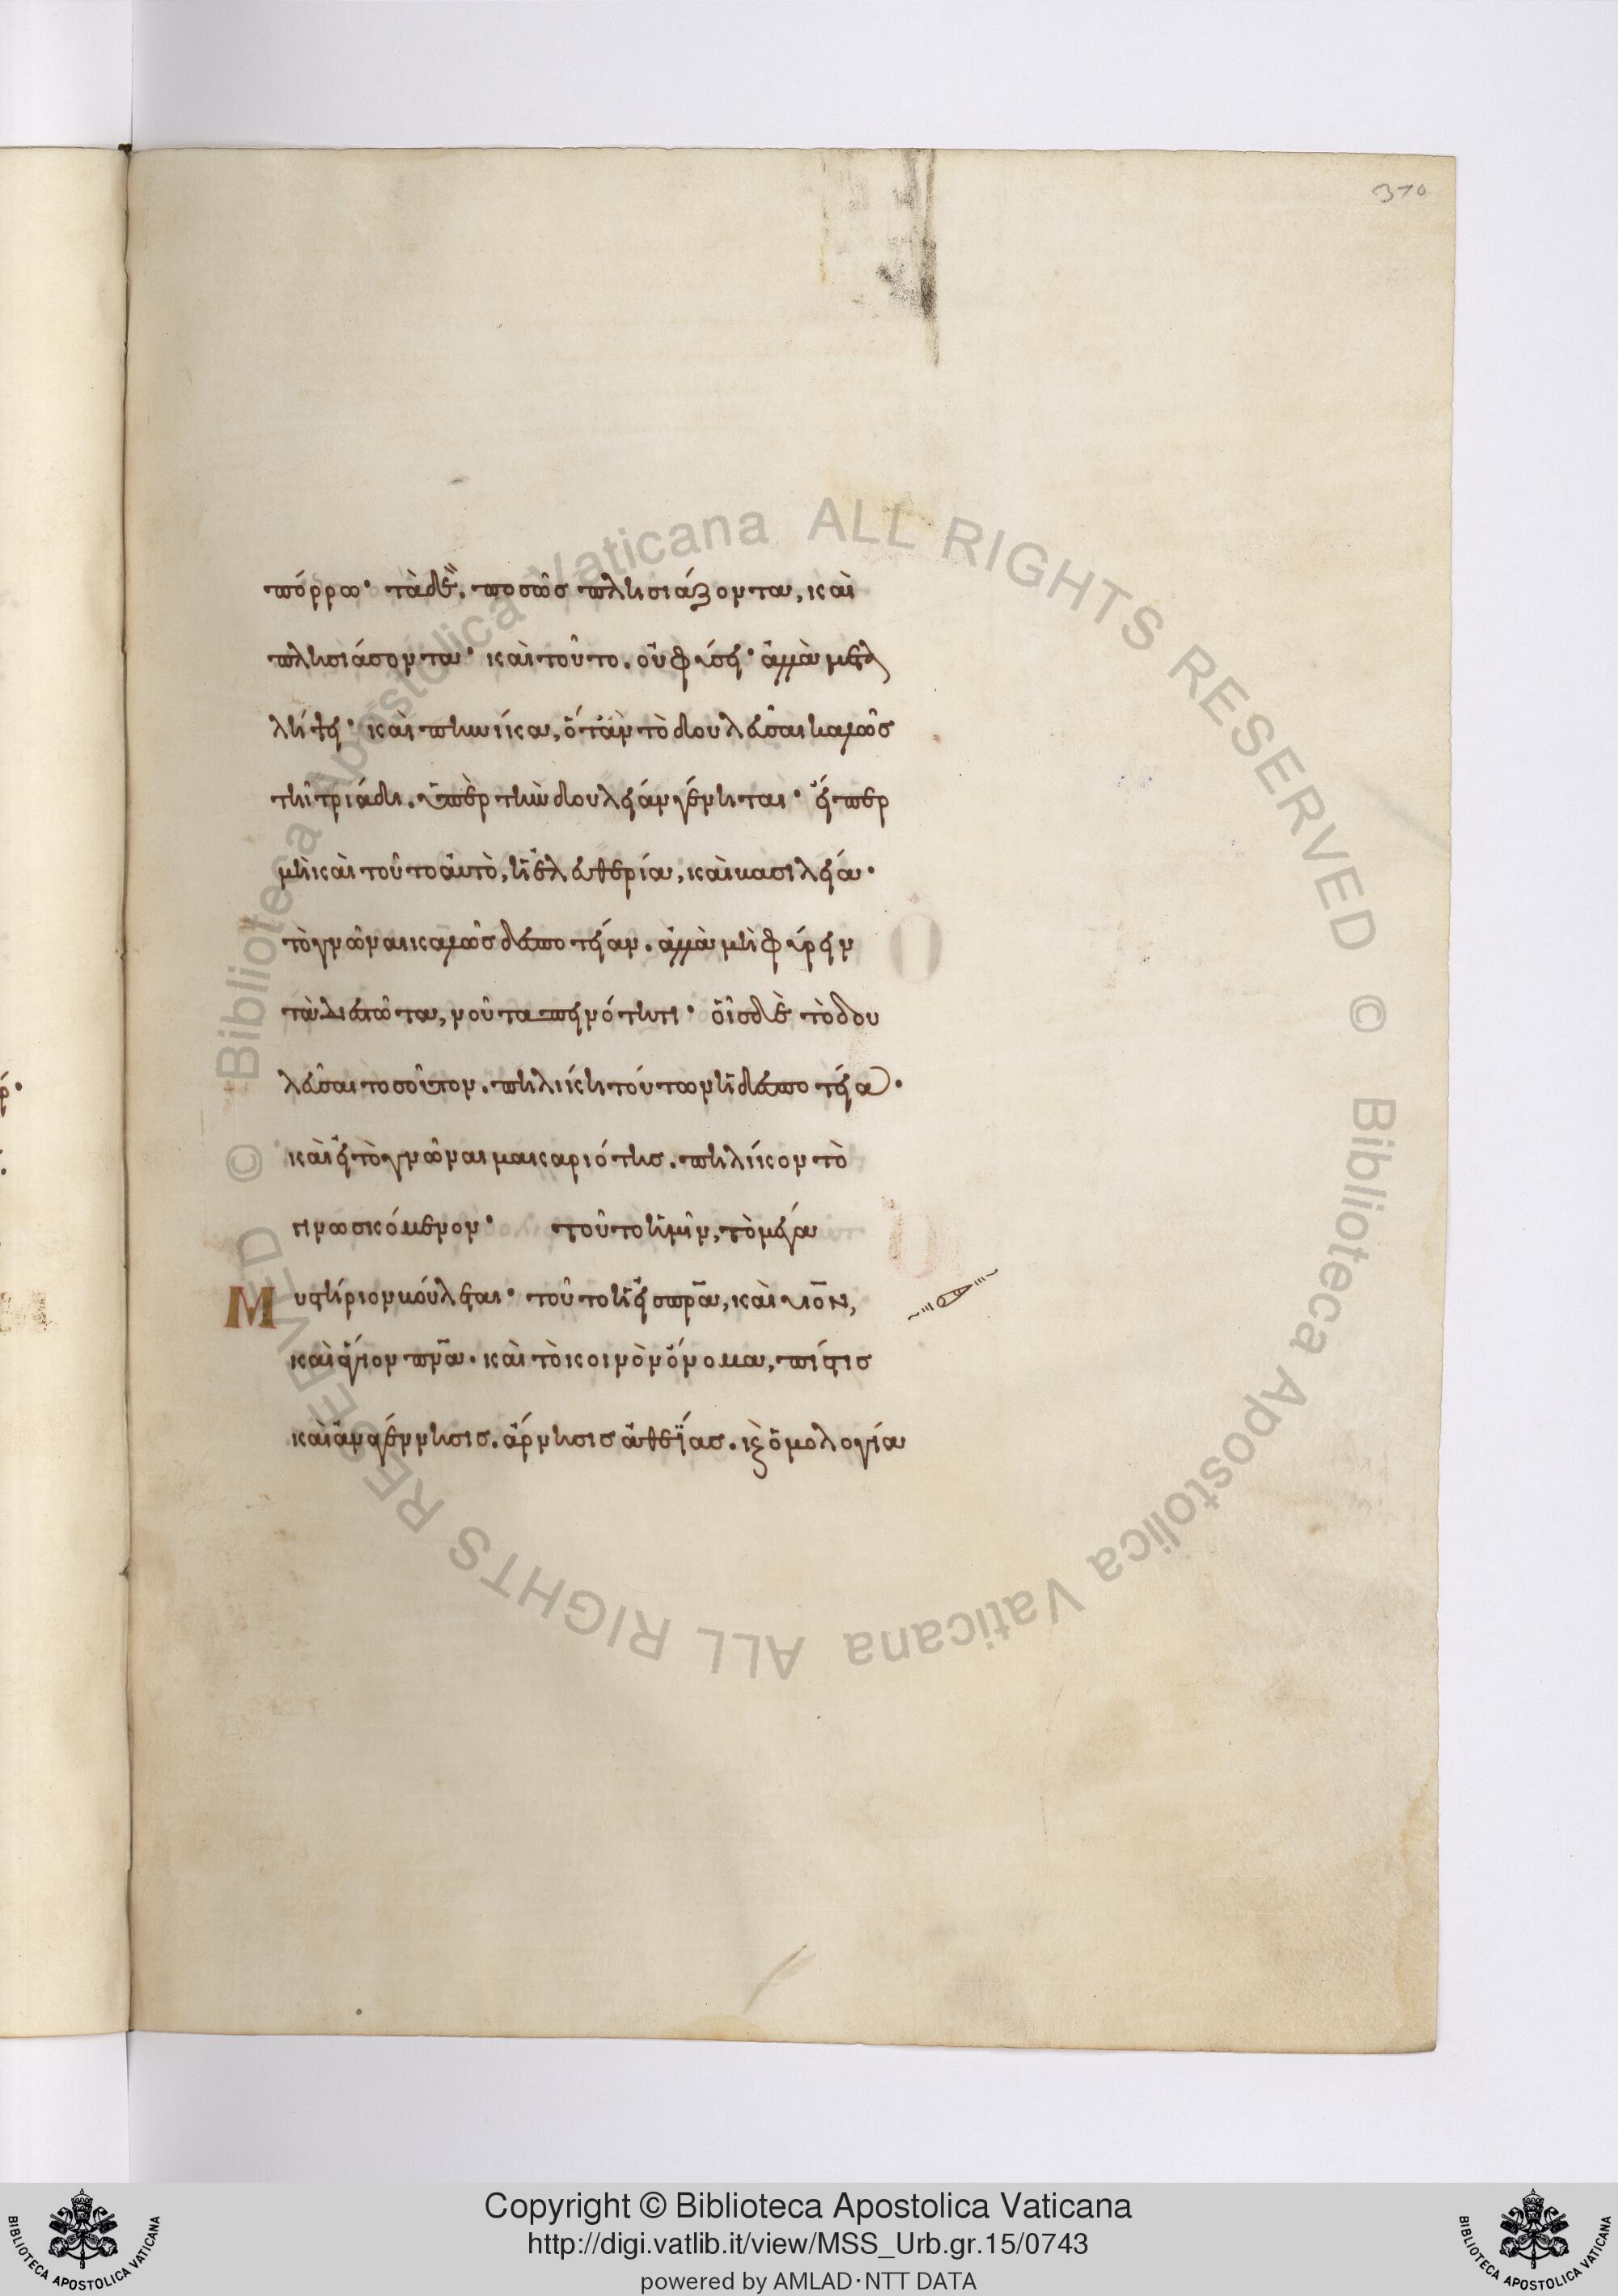 370
πόρρω· τὰ δὲ. ποσῶς πλησιάζοντα, καὶ
πλησιάσοντα· καὶ τοῦτο. οὐ φύσει· ἀλλὰ μεταλ
λήψει· καὶ πηνίκα, ὅτἂν τὸ δουλεῦσαι καλῶς
τῆ τριάδι. ὑπὲρ τὴν δουλείαν γένηται· εἴπερ
μὴ καὶ τοῦτο αὐτὸ, ἡ ἐλευθερία, καὶ βασιλεία·
τὸ γνῶναι καλῶς δεσποτείαν. ἀλλὰ μὴ φύρειν
τὰ διεστῶτα, νοῦ ταπεινότητι· οἷς δὲ τὸ δου
λεῦσαι τοσοῦτον. πηλίκη τούτων ἡ δεσποτεία·
καὶ εἰ τὸ γνῶναι μακαριότης. πηλίκον τὸ
γινωσκόμενον· τοῦτο ἡμῖν, τὸ μέγα
Μυστήριον βούλεται· τοῦτο ἡ εἰς πρ̅α, καὶ υἱο̅ν,
καὶ ἅγιον πν̅α· καὶ τὸ κοινὸν ὄνομα, πίστις
καὶ ἀναγέννησις. ἄρνησις ἀθεΐας. κ̀ ὁμολογία
Copyright © Biblioteca Apostolica Vaticana
http://digi.vatlib.it/view/MSS_Urb.gr.15/0743
powered by AMLAD·NTT DATA
BIBLIOTECA APOSTOLICA VATICANA
BIBLIOTECA APOSTOLICA VATICANA
© Biblioteca Apostolica Vaticana ALL RIGHTS RESERVED © Biblioteca Apostolica Vaticana ALL RIGHTS RESERVED